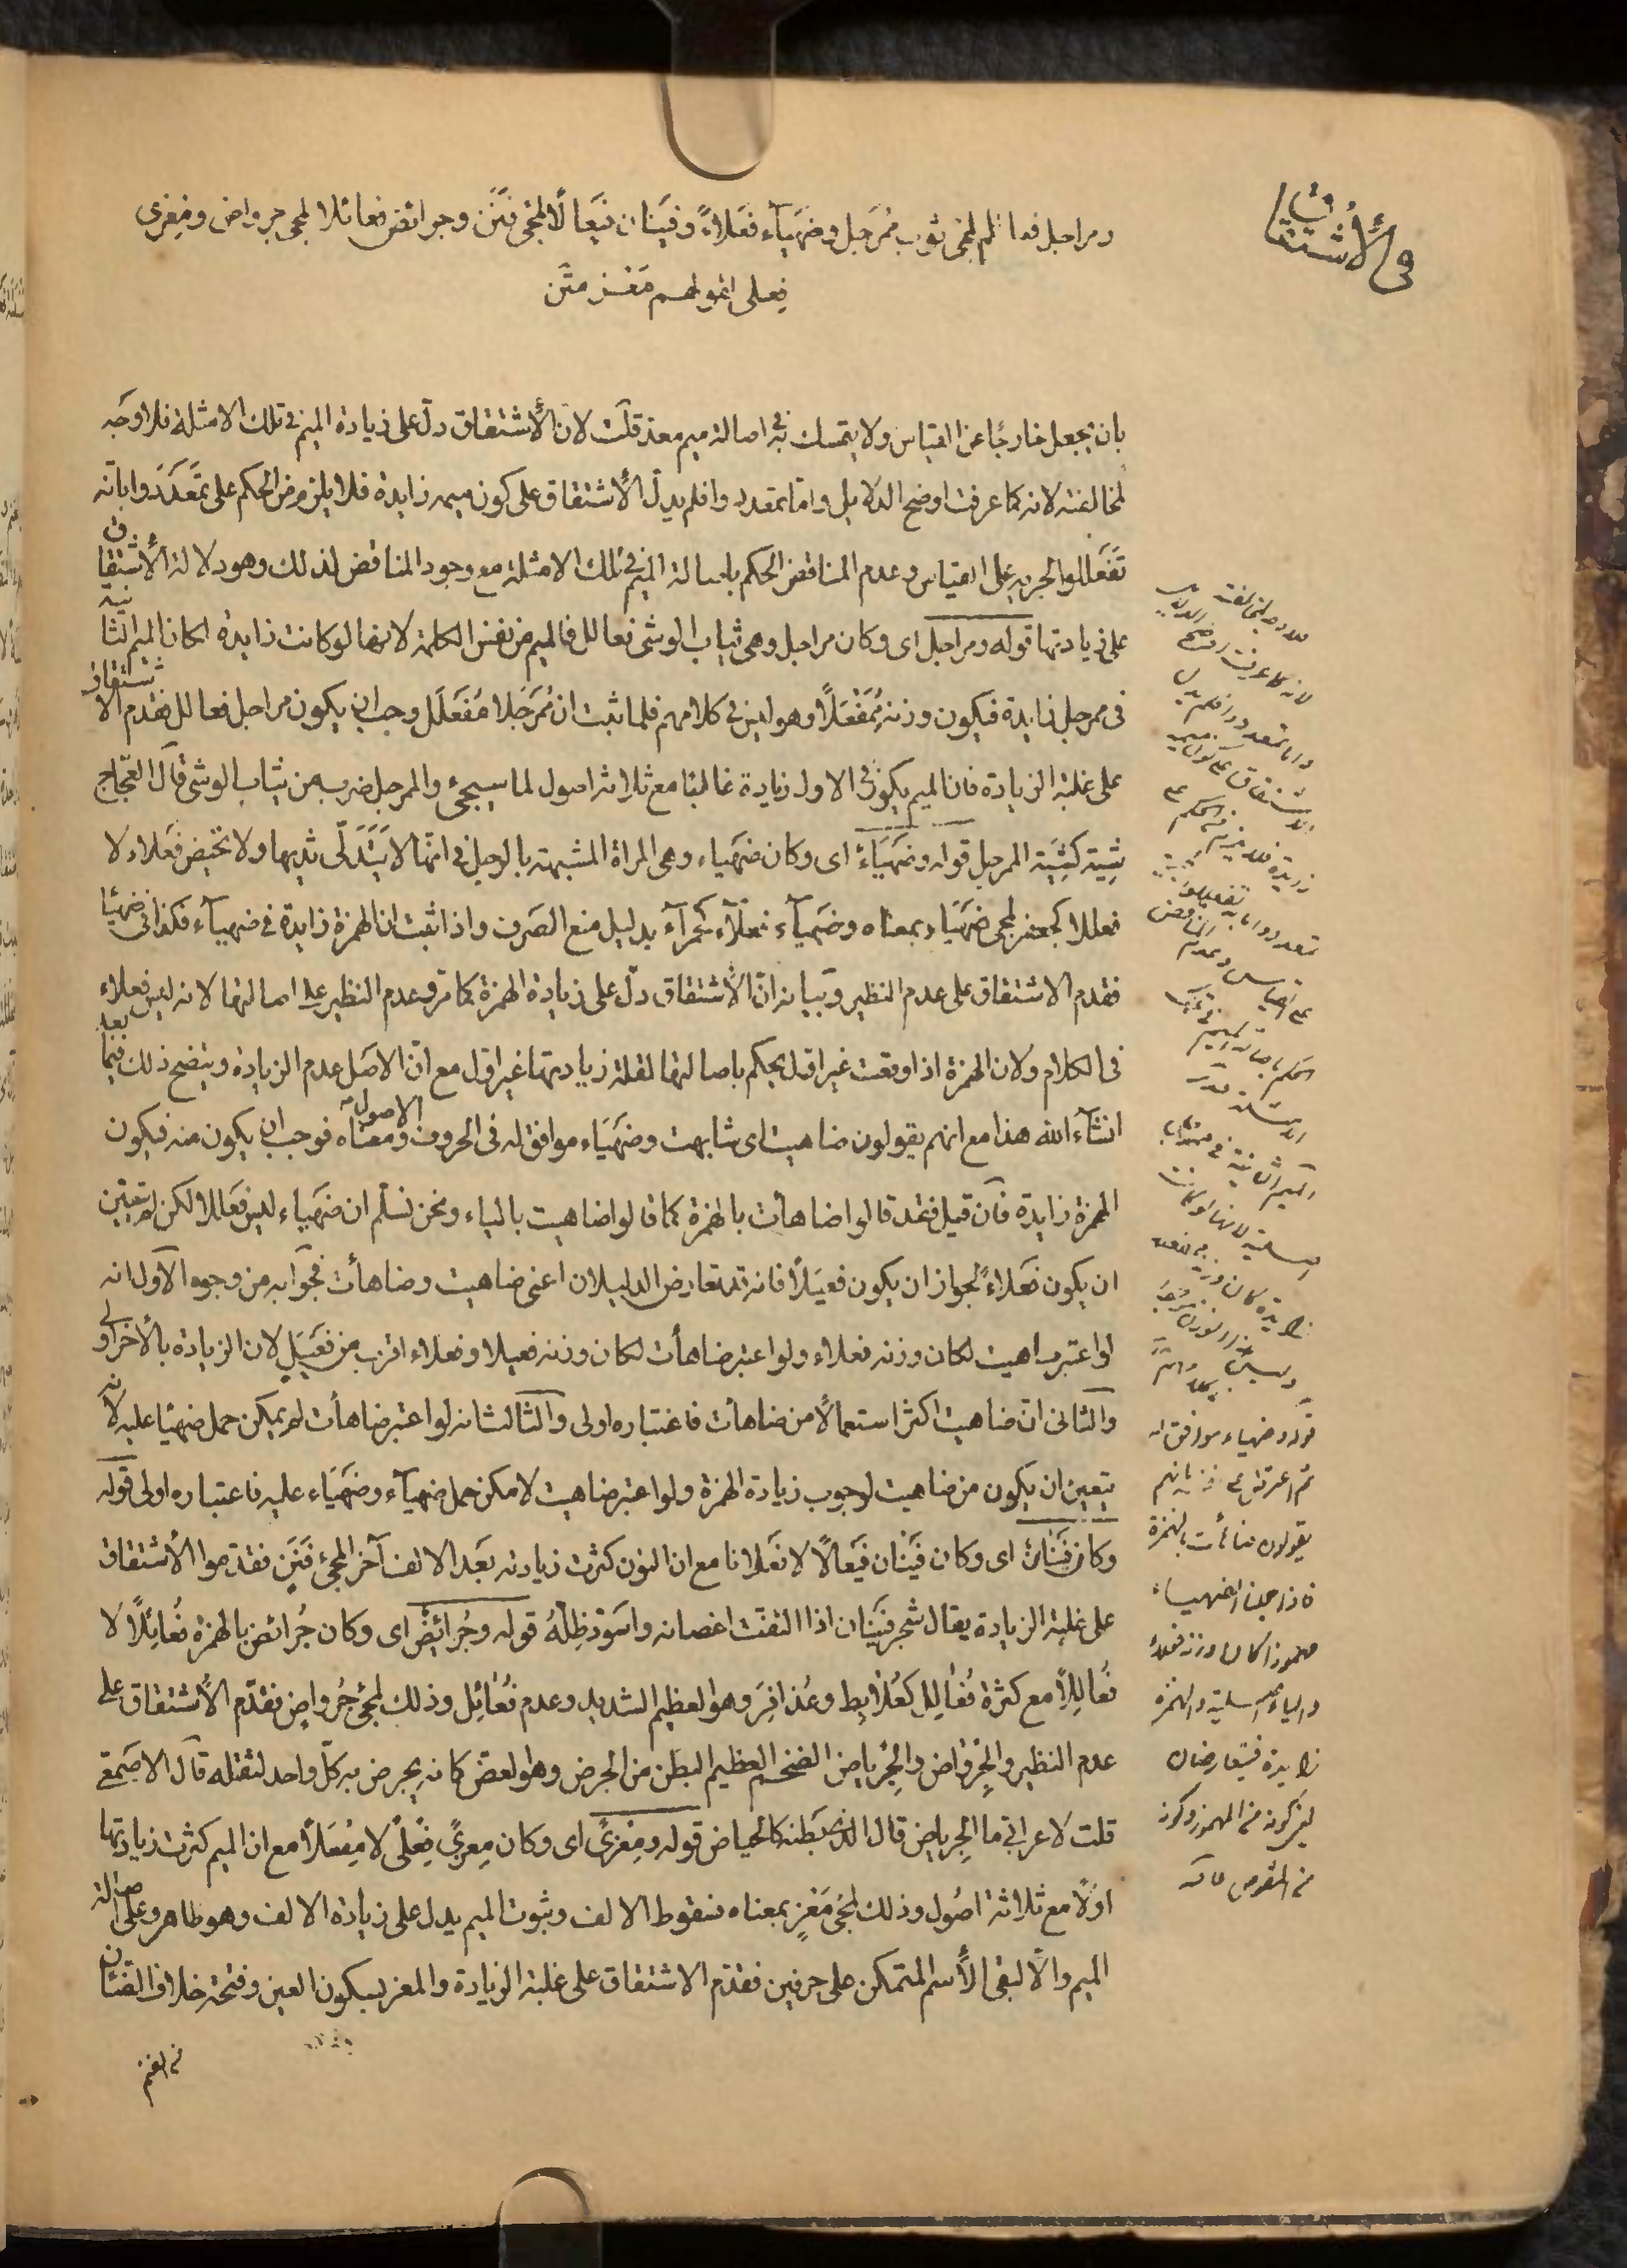 في الأشتقاق
ومراجل فعالل لمجئ ثوب ممرجل وضهيآء فعلاءً وفينان فيعالًا لمجئ فنن وجرائض فعائلا لمجئ جرواض ومعزى
فعلى لقولهم معز متن
بان يجعل خارجًا عن القياس ولا يتمسك به في اصالة ميم معد قلت لان الأشتقاق دلّ على زيادة الميم في تلك الامثلة فلا وجه
لمخالفته لانه كما عرفت اوضح الدلايل واما تمعددوا فلم يدلّ الأشتقاق على كون ميمه زايدة فلا يلزم من الحكم على تمعددوا بانه
تفعللوا لجريه على القياس وعدم المناقض الحكم باصالة الميم في تلك الامثلة مع وجود المناقض لذلك وهو دلالة الأشتقاق
على زيادتها قوله ومراجل اى وكان مراجل وهى ثياب الوشى فعالل فالميم من نفس الكلمة لانها لو كانت زايدة لكان الميم الثانية
فى ممرجل زايدة فيكون وزنه ممفعلًا وهو ليس في كلامهم فلما ثبت ان ممرجلا مفعلل وجب ان يكون مراجل فعالل فقدم الاشتقاق
على غلبة الزيادة فان الميم يكون في الاول زيادة غالبًا مع ثلاثة اصول لما سيجئ والممرجل ضرب من ثياب الوشى قال العجّاج
بشية كشية الممرجل قوله وضهياء اى وكان ضهياء وهى المراة المشبهة بالرجل في انها لا يتدلّى ثديها ولا تحيض فعلاء لا
فعللا كجعفر لمجئ ضهياء بمعناه وضهيآء فعلآء كحمرآء بدليل منع الصرف واذا ثبت ان الهمزة زايدة في ضهيآء فكذا في ضهيئا
فقدم الاشتقاق على عدم النظير وبيانه ان الأشتقاق دلّ على زيادة الهمزة كما مرّ وعدم النظير على اصالتها لانه ليس فعلاء
فى الكلام ولان الهمزة اذا وقعت غير اول يحكم باصالتها لقلة زيادتها غير اول مع انّ الاصل عدم الزيادة ويتضح ذلك فيما بعد
انشآء الله هذا مع انهم يقولون ضاهيت اى شابهت وضهياء موافق له فى الحروف الاصول ومعناه فوجب ان يكون منه فيكون
الهمزة زايدة فان قيل فقد قالوا ضاهأت بالهمزة كما قالوا ضاهيت بالياء ونحن نسلّم ان ضهياء ليس فعللا لكن لم يتعين
ان يكون فعلاءً لجواز ان يكون فعيلًا فانه قد تعارض الدليلان اعنى ضاهيت وضاهأت فجوابه من وجوه الاول انه
لو اعتبر ضاهيت لكان وزنه فعلاء ولو اعتبر ضاهأت لكان وزنه فعيلا وفعلاء اقرب من فعيل لان الزيادة بالأخر اولى
والثانى انّ ضاهيت اكثر استعمالًا من ضاهأت فاعتباره اولى والثالث انه لو اعتبر ضاهأت لم يمكن حمل ضهيئا عليه لانه
يتعين ان يكون من ضاهيت لوجوب زيادة الهمزة ولو اعتبر ضاهيت لامكن حمل ضهيآء وضهياء عليه فاعتباره اولى قوله
وكان فينان اى وكان فينان فيعالًا لا فعلانا مع ان النون كثرت زيادته بعد الالف آخر المجئ فنن فقدموا الأشتقاق
على غلبة الزيادة يقال شجر فينان اذا التفت اغصانه واسود ظله قوله وجرائض اى وكان جرائض بالهمزة فعائلًا لا
فعاللًا مع كثرة فعالل كعلابط وعذافر وهو العظيم الشديد وعدم فعائل وذلك لمجئ جرواض فقدّم الأشتقاق على
عدم النظير والجرواض والجرياض الضخم العظيم البطن من الجرض وهو الغصّ كانه يجرض به كلّ واحد لثقله قال الاصمعى
قلت لاعرابي ما الجرياض قال الذى بطنه كالحياض قوله ومعزىً اى وكان معزىً فعلًى لا مفعلًا مع ان الميم كثرت زيادتها
اولًا مع ثلاثة اصول وذلك لمجئ معزٍ بمعناه فسقوط الالف وثبوت الميم يدل على زيادة الالف وهو ظاهر وعلى اصالة
الميم والّا لبقى الأسم المتمكن على حرفين فقدّم الاشتقاق على غلبة الزيادة والمعز بسكون العين وفتحه خلاف الضان
من الغنم
فلا وجه لمخالفته
لانه كما عرفت اوضح الدلايل
واما تمعددوا فلم يدل
الاشتقاق على كون ميمه
زايدة فلا يلزم من الحكم على
تمعددوا بانه تفعللوا
على القياس وعدم المناقض
الحكم باصالة الميم في تلك
الميم الثانية في
اصلية لانها لو كانت
زايدة كان وزنه
قوله وضهياء موافق له
ثم اعترض على بانهم
يقولون ضاهأت بالهمزة
فاذا جعلنا ضهياء
مهموزا كان وزنه فعلا
والياء اصلية والهمزة
زايدة فتعارضان